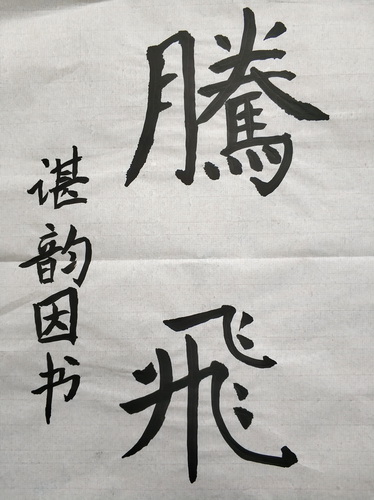 騰飛
谌韵因书